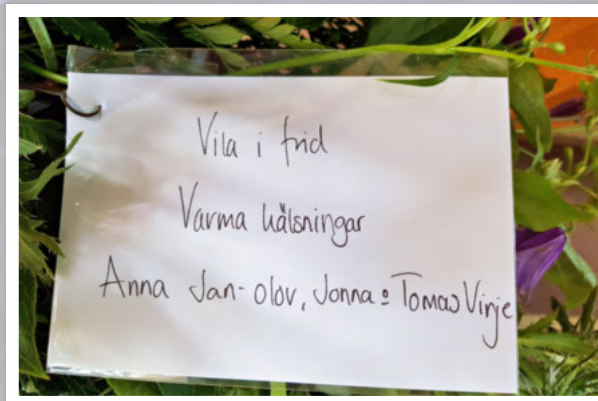 Vila i frid
Varma hälsningar
Anna Jan-Olov, Jonna o Tomas Virje